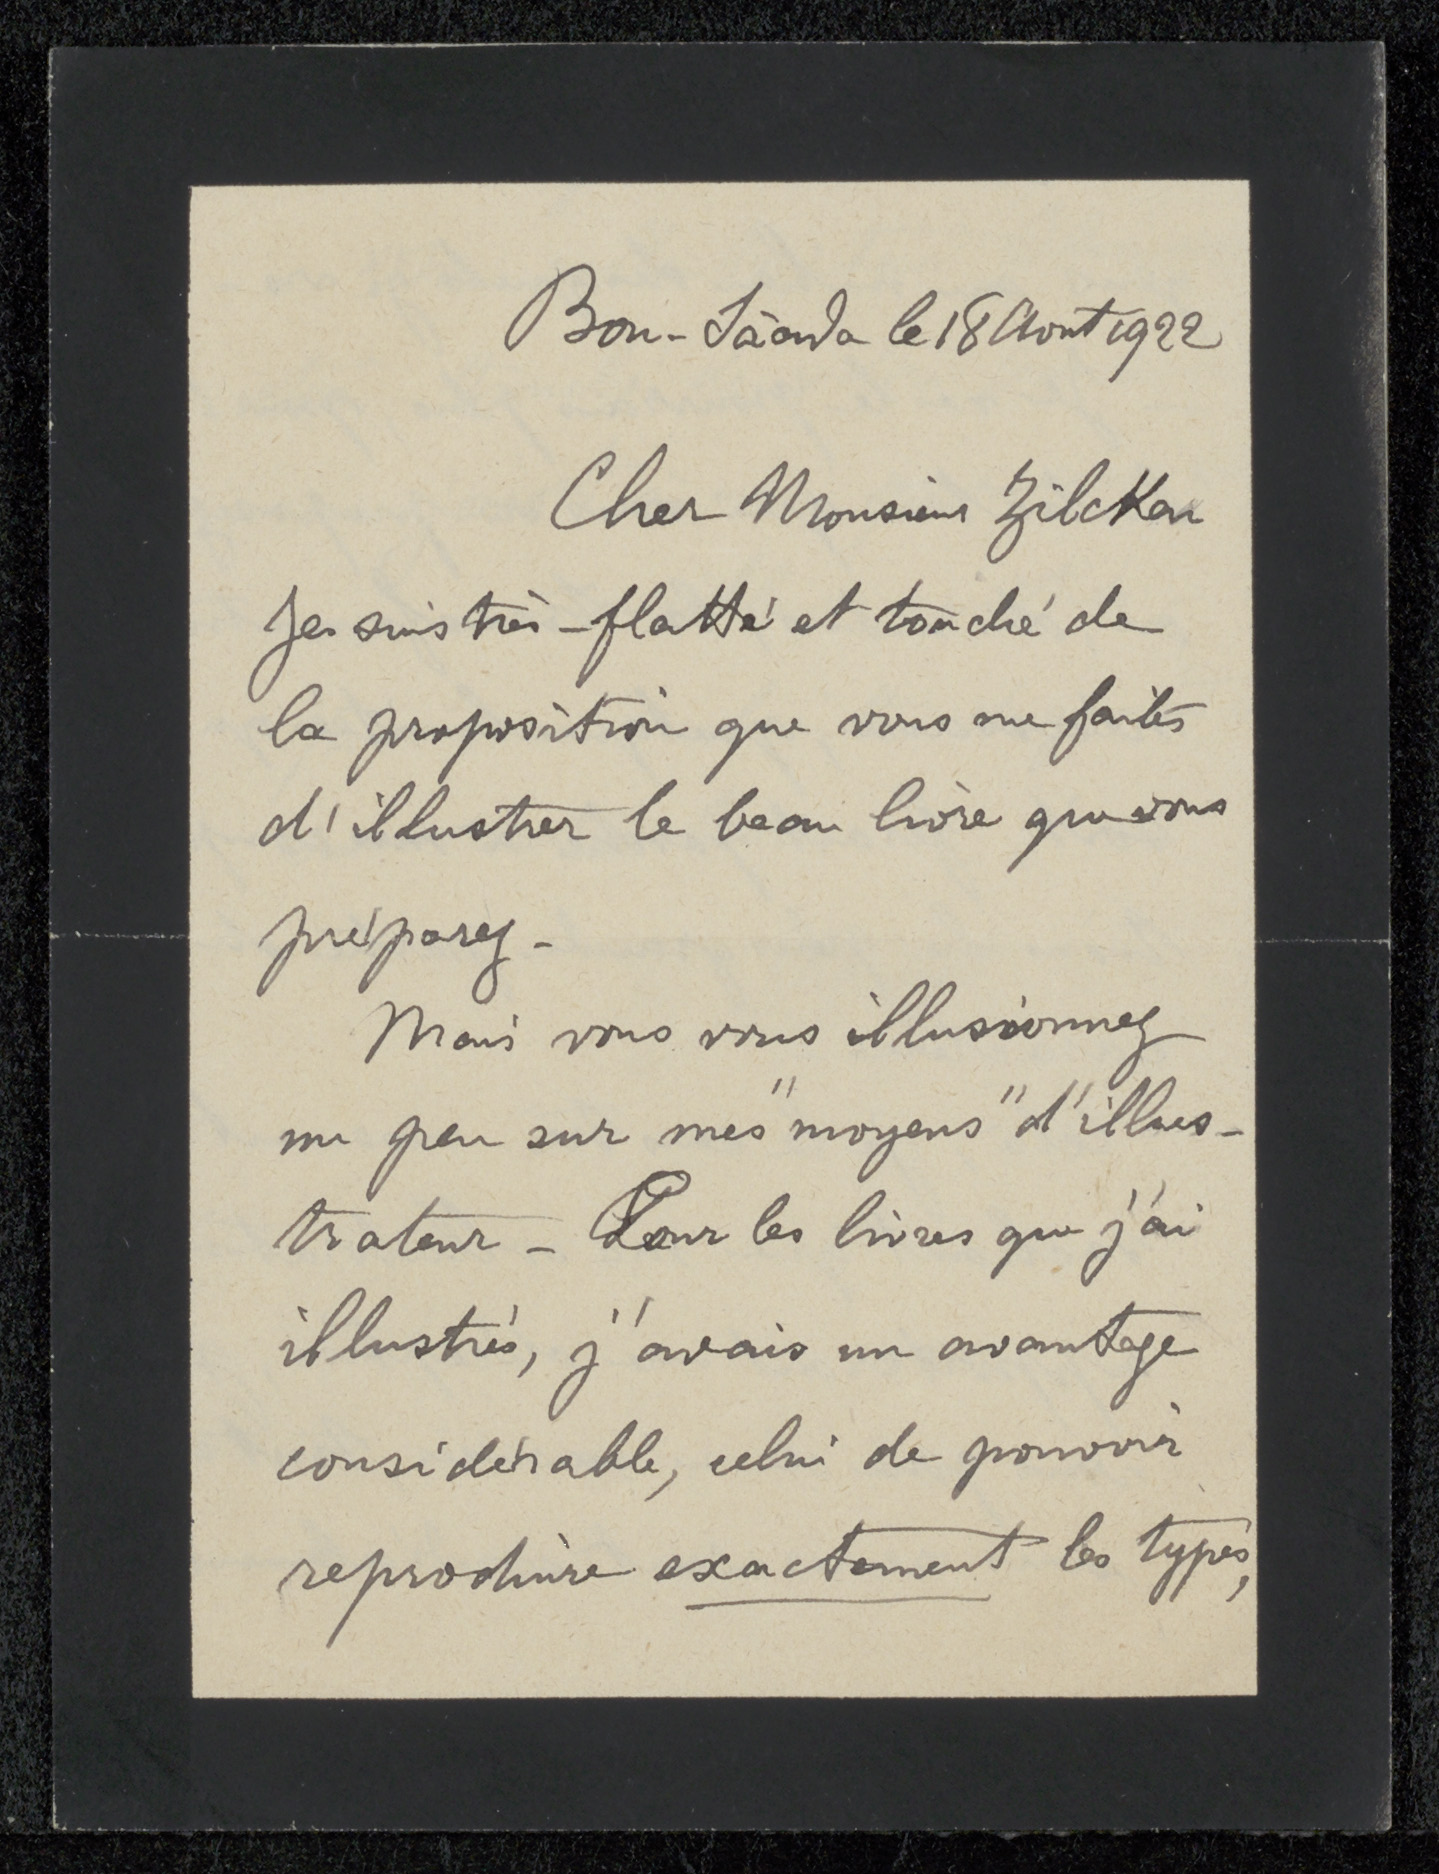 Bou-Sâada le 18 Aout 1922
Cher Monsieur Zilcken
Je suis très-flatté et touché de
la proposition que vous me faites
d'illustrer le beau livre que vous
préparez -
Mais vous vous illusionnez
un peu sur mes "moyens" d'illus-
trateur - Pour les livres que j'ai
illustrés, j'avais un avantage
considérable, celui de pouvoir
reproduire exactement les types,